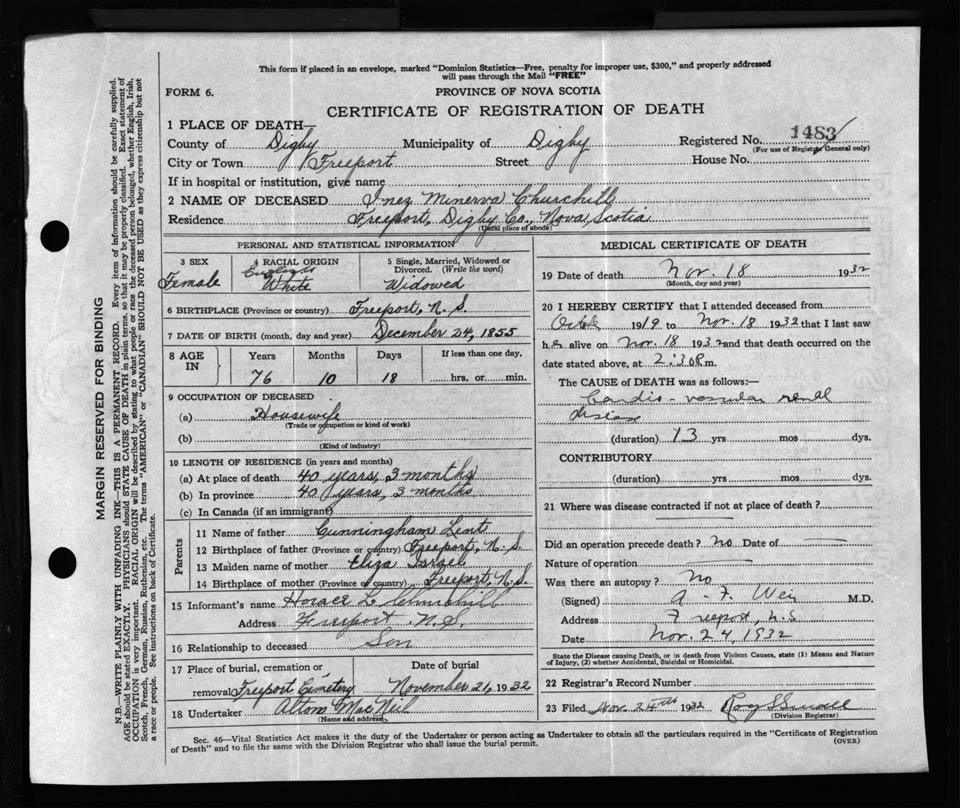 This form if placed in an envelope, marked "Dominion Statistics—Free, penalty for improper use, $300," and properly addressed
will pass through the Mail "FREE"
FORM 6.
PROVINCE OF NOVA SCOTIA
CERTIFICATE OF REGISTRATION OF DEATH
1 PLACE OF DEATH—
County of Digby Municipality of Digby Registered No. 1483
(For use of Registrar General only)
City or Town Freeport Street House No.
If in hospital or institution, give name
2 NAME OF DECEASED Inez Minerva Churchill
Residence Freeport, Digby Co., Nova Scotia
(Usual place of abode)
PERSONAL AND STATISTICAL INFORMATION
3 SEX
Female
4 RACIAL ORIGIN
English
White
5 Single, Married, Widowed or
Divorced. (Write the word)
Widowed
6 BIRTHPLACE (Province or country) Freeport, N. S.
7 DATE OF BIRTH (month, day and year) December 24, 1855
8 AGE
IN
Years Months Days If less than one day,
76 10 18 hrs. or min.
9 OCCUPATION OF DECEASED
(a) Housewife
(Trade or occupation or kind of work)
(b)
(Kind of industry)
10 LENGTH OF RESIDENCE (in years and months)
(a) At place of death 40 years, 3 months
(b) In province 40 years, 3 months
(c) In Canada (if an immigrant)
Parents
11 Name of father Cunningham Lent
12 Birthplace of father (Province or country) Freeport, N. S.
13 Maiden name of mother Eliza
14 Birthplace of mother (Province or country) Freeport, N. S.
15 Informant's name Horace L Churchill
Address Freeport N.S.
16 Relationship to deceased Son
17 Place of burial, cremation or Date of burial
removal Freeport Cemetery November 21, 1932
18 Undertaker Alton MacNeil
(Name and address)
MEDICAL CERTIFICATE OF DEATH
19 Date of death Nov. 18 1932
(Month, day and year)
20 I HEREBY CERTIFY that I attended deceased from
1919 to Nov. 18 1932 that I last saw
her alive on Nov. 18 1932 and that death occurred on the
date stated above, at 2:30 P.m.
The CAUSE OF DEATH was as follows:—
Cardio-vascular renal
disease
(duration) 13 yrs mos dys.
CONTRIBUTORY
(duration) yrs mos dys.
21 Where was disease contracted if not at place of death?
Did an operation precede death? No Date of —
Nature of operation —
Was there an autopsy? No
(Signed) A. F. Weir M.D.
Address Freeport, N.S
Date Nov. 24, 1932
State the Disease causing Death, or in death from Violent Causes, state (1) Means and Nature
of Injury, (2) whether Accidental, Suicidal or Homicidal.
22 Registrar's Record Number
23 Filed Nov. 24th 1932
(Division Registrar)
Sec. 46—Vital Statistics Act makes it the duty of the Undertaker or person acting as Undertaker to obtain all the particulars required in the "Certificate of Registration
of Death" and to file the same with the Division Registrar who shall issue the burial permit.
(OVER)
MARGIN RESERVED FOR BINDING
N.B.—WRITE PLAINLY WITH UNFADING INK—THIS IS A PERMANENT RECORD. Every item of information should be carefully supplied.
AGE should be stated EXACTLY. PHYSICIANS should STATE CAUSE OF DEATH in plain terms, so that it may be properly classified. Exact statement of
OCCUPATION is very important. RACIAL ORIGIN will be described by stating to what people or race the deceased person belonged, whether English, Irish,
Scotch, French, German, Russian, Ruthenian, etc. The terms "AMERICAN" or "CANADIAN" SHOULD NOT BE USED as they express citizenship but not
a race or people. See instructions on back of Certificate.